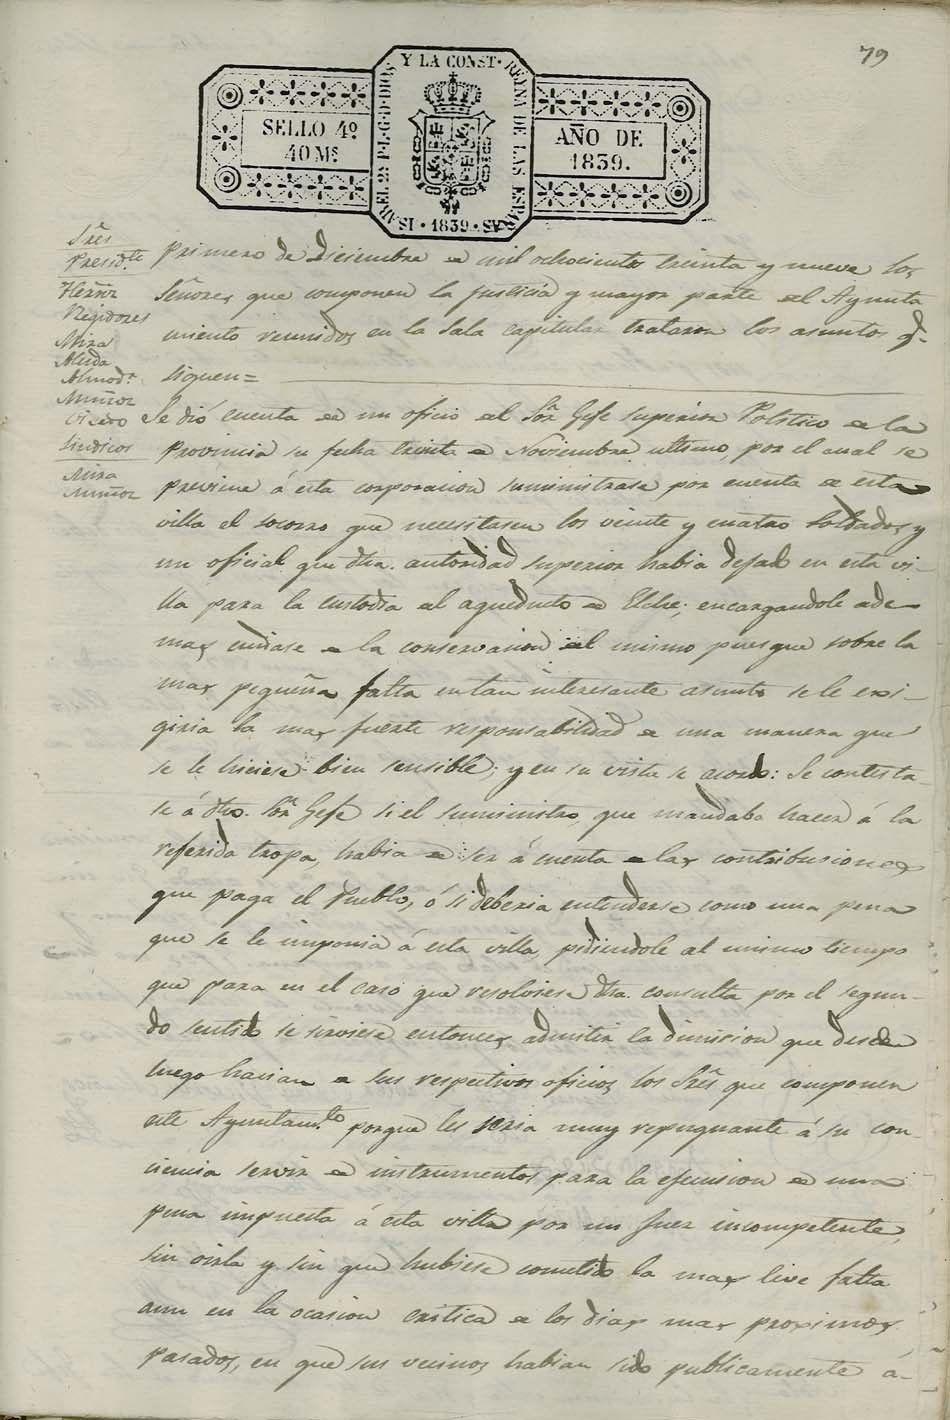 79
Y LA CONST. REYNA DE LAS ESPAÑAS
ISABEL 2ª P.L.G.D.DIOS
SELLO 4º
40 Ms
AÑO DE
1839.
1839
Sres
Presidte
Regidores
Mira
Almodr
Muñoz
Sindicos
Mira
Muñoz
Primero de Diciembre de mil ochocientos treinta y nueve los
Señores que componen la justicia y mayor parte del Ayunta
miento reunidos en la Sala capitular trataron los asuntos q.
siguen=
Se dió cuenta de un oficio del Sor Gefe superior Politico de la
Provincia su fecha treinta de Noviembre ultimo, por el cual se
previene á esta corporacion suministrase por cuenta de esta
villa el socorro que necesitasen los veinte y cuatro Soldados y
un oficial que dha. autoridad superior habia dejado en esta vi-
lla para la custodia del aqueducto de Elche; encargandole ade-
mas cuidase de la conservacion del mismo puesque sobre la
mas pequeña falta en tan interesante asunto se le exi-
giria la mas fuerte responsabilidad de una manera que
se le hiciese bien sensible; y en su vista se acordo: Se contesta-
se á dho. Sor Gefe si el suministro, que mandaba hacer á la
referida tropa, habia de ser á cuenta de las contribuciones
que paga el Pueblo, ó si deberia entenderse como una pena
que se le imponia á esta villa, pidiendole al mismo tiempo
que para en el caso que resolviese dha. consulta por el segun-
do sentido se sirviese entonces admitir la dimision que desde
luego hacian de sus respectivos oficios los Sres que componen
este Ayuntamto porque les seria muy repugnante á su con-
ciencia servir de instrumentos para la ejecusion de una
pena impuesta á esta villa por un Juez incompetente,
sin oirla y sin que hubiese cometido la mas leve falta
aun en la ocasion critica de los dias mas proximos
pasados, en que sus vecinos habian sido publicamente á-